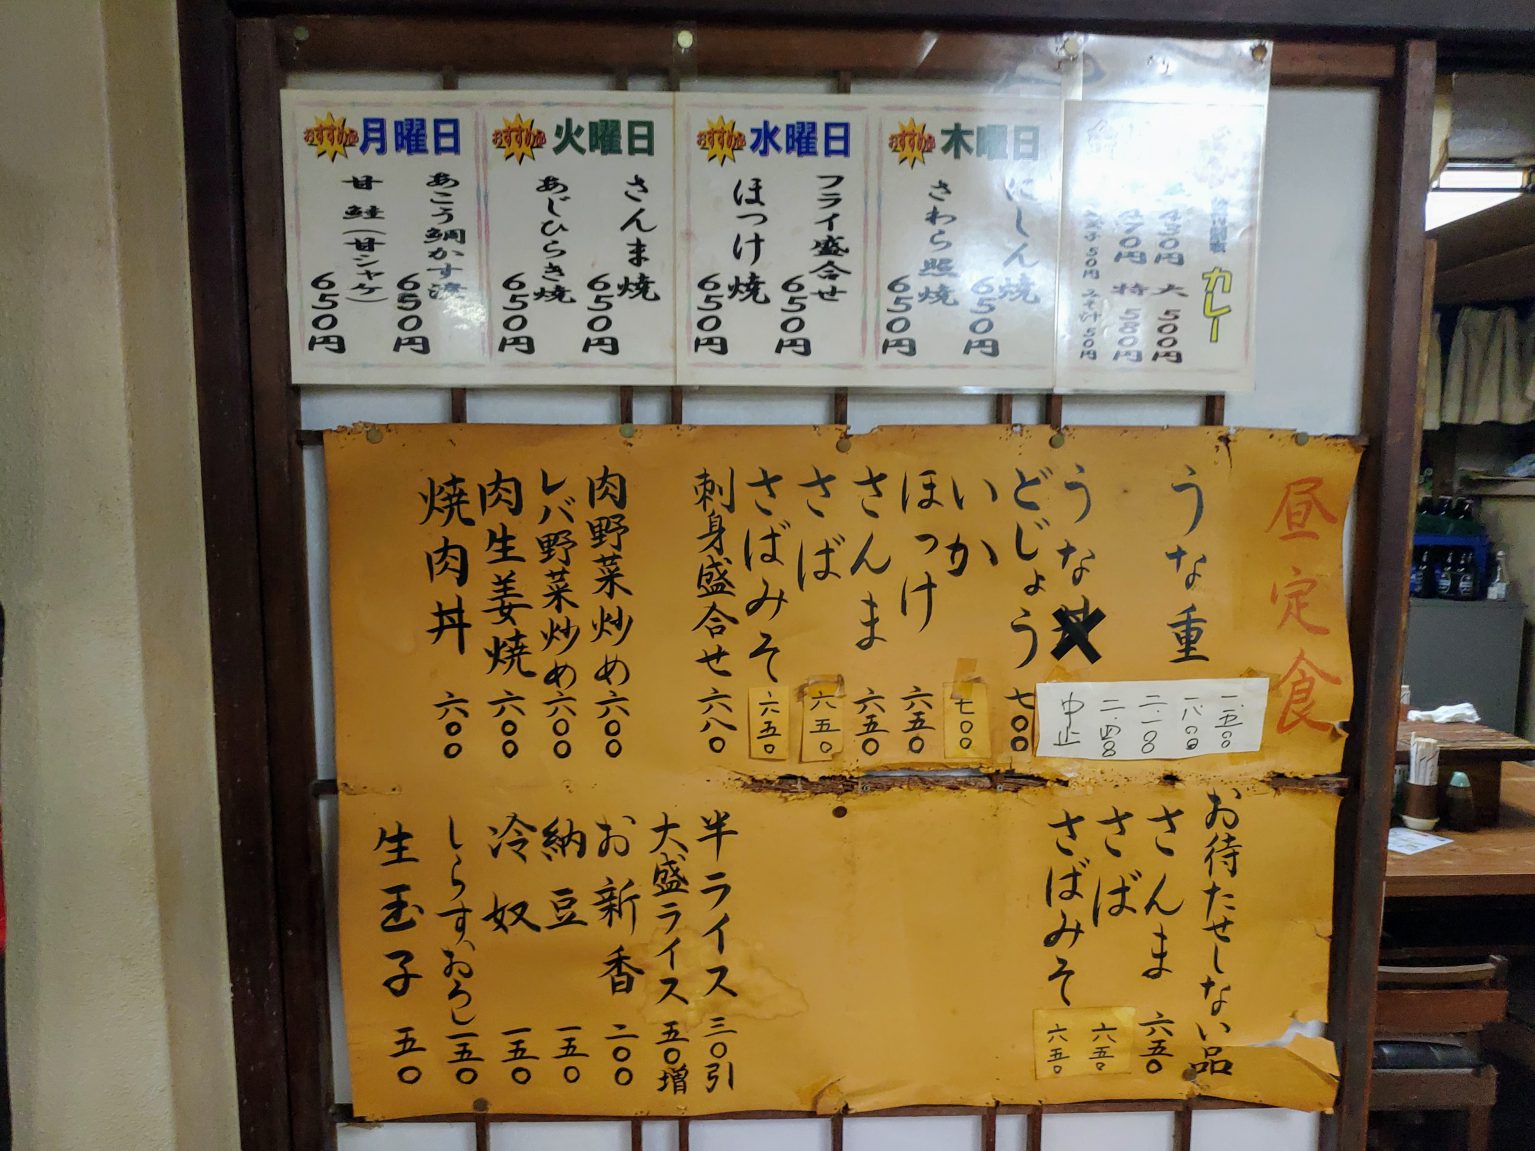 おすすめ品 月曜日
あこう鯛かす漬
650円
甘鮭(甘シャケ)
650円
おすすめ品 火曜日
さんま焼
650円
あじひらき焼
650円
おすすめ品 水曜日
フライ盛合せ
650円
ほっけ焼
650円
おすすめ品 木曜日
にしん焼
650円
さわら照焼
650円
カレー
430円 大 500円
470円 特 580円
50円 50円
昼定食
うな重
一、五〇〇
一、八〇〇
二、一〇〇
二、四〇〇
うな
中止
どじょう 七〇〇
いか 七〇〇
ほっけ 六五〇
さんま 六五〇
さば 六五〇
さばみそ 六五〇
刺身盛合せ 六八〇
肉野菜炒め 六〇〇
レバ野菜炒め 六〇〇
肉生姜焼 六〇〇
焼肉丼 六〇〇
お待たせしない品
さんま 六五〇
さば 六五〇
さばみそ 六五〇
半ライス 三〇引
大盛ライス 五〇増
お新香 二〇〇
納豆 一五〇
冷奴 一五〇
しらすおろし 一五〇
生玉子 五〇